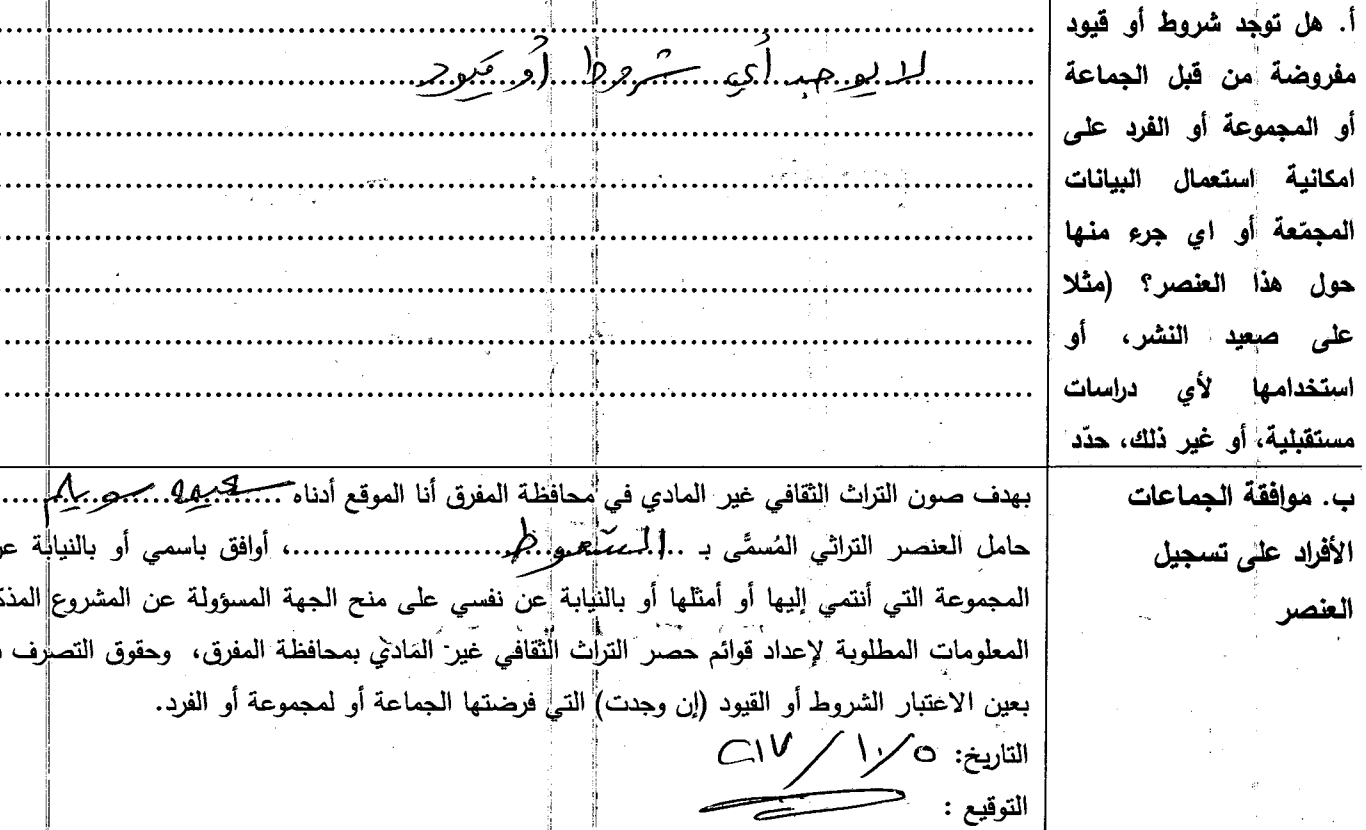 أ. هل توجد شروط أو قيود
مفروضة من قبل الجماعة
أو المجموعة أو الفرد على
امكانية استعمال البيانات
المجمّعة أو اي جرء منها
حول هذا العنصر؟ (مثلا
على صعيد النشر، أو
استخدامها لأي دراسات
مستقبلية، أو غير ذلك، حدّد
لا يوجد أي شروط أو قيود
ب. موافقة الجماعات
الأفراد على تسجيل
العنصر
بهدف صون التراث الثقافي غير المادي في محافظة المفرق أنا الموقع أدناه
حامل العنصر التراثي المُسمَّى بـ السعوط، أوافق باسمي أو بالنيابة عن
المجموعة التي أنتمي إليها أو أمثلها أو بالنيابة عن نفسي على منح الجهة المسؤولة عن المشروع المذك
المعلومات المطلوبة لإعداد قوائم حصر التراث الثقافي غير المادي بمحافظة المفرق، وحقوق التصرف
بعين الاعتبار الشروط أو القيود (إن وجدت) التي فرضتها الجماعة أو لمجموعة أو الفرد.
التاريخ: ٥/١٠/٢٠١٧
التوقيع :